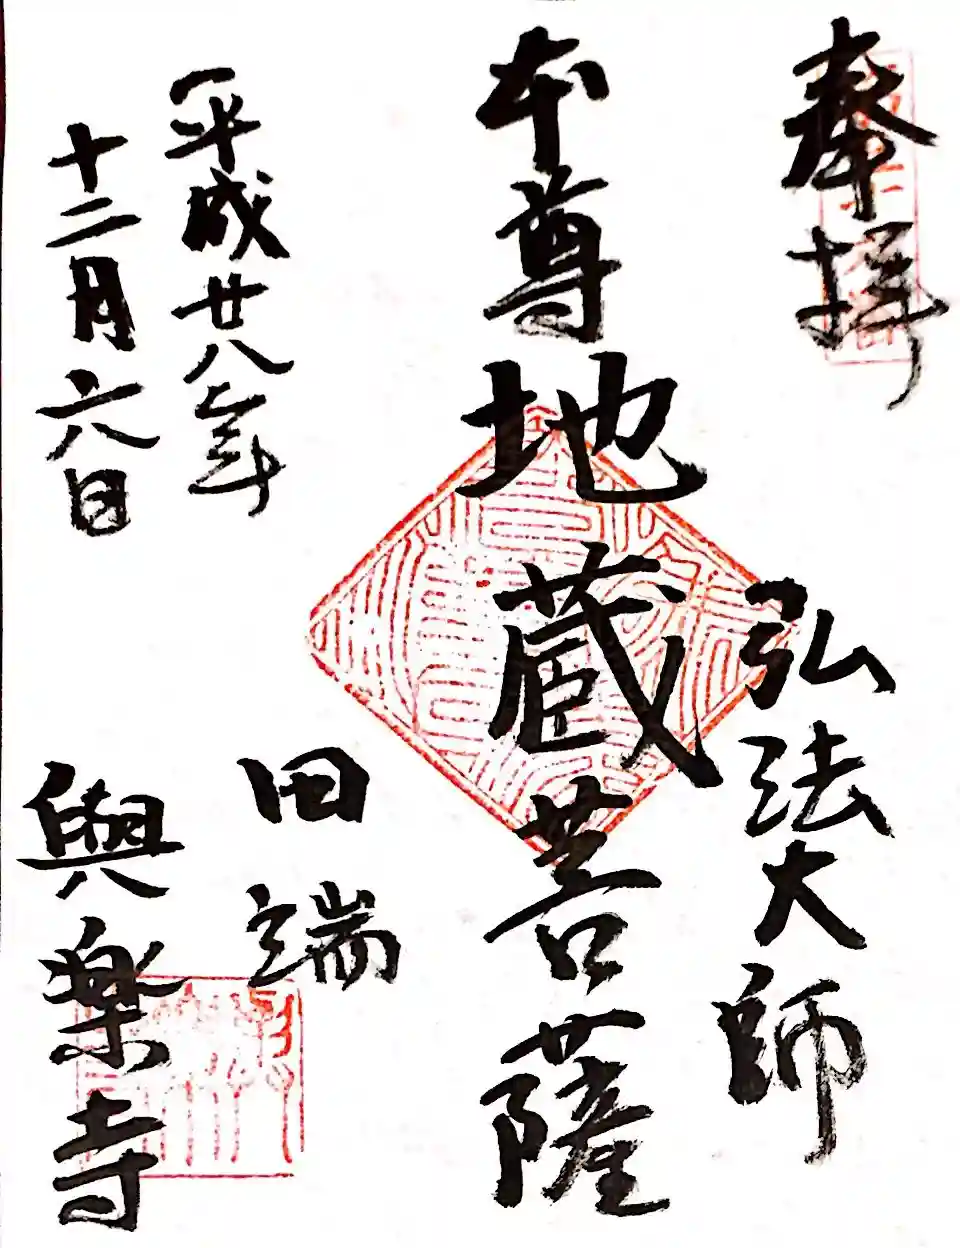 奉拝
弘法大師
本尊地蔵菩薩
平成廿八年
十二月六日
田端
與楽寺